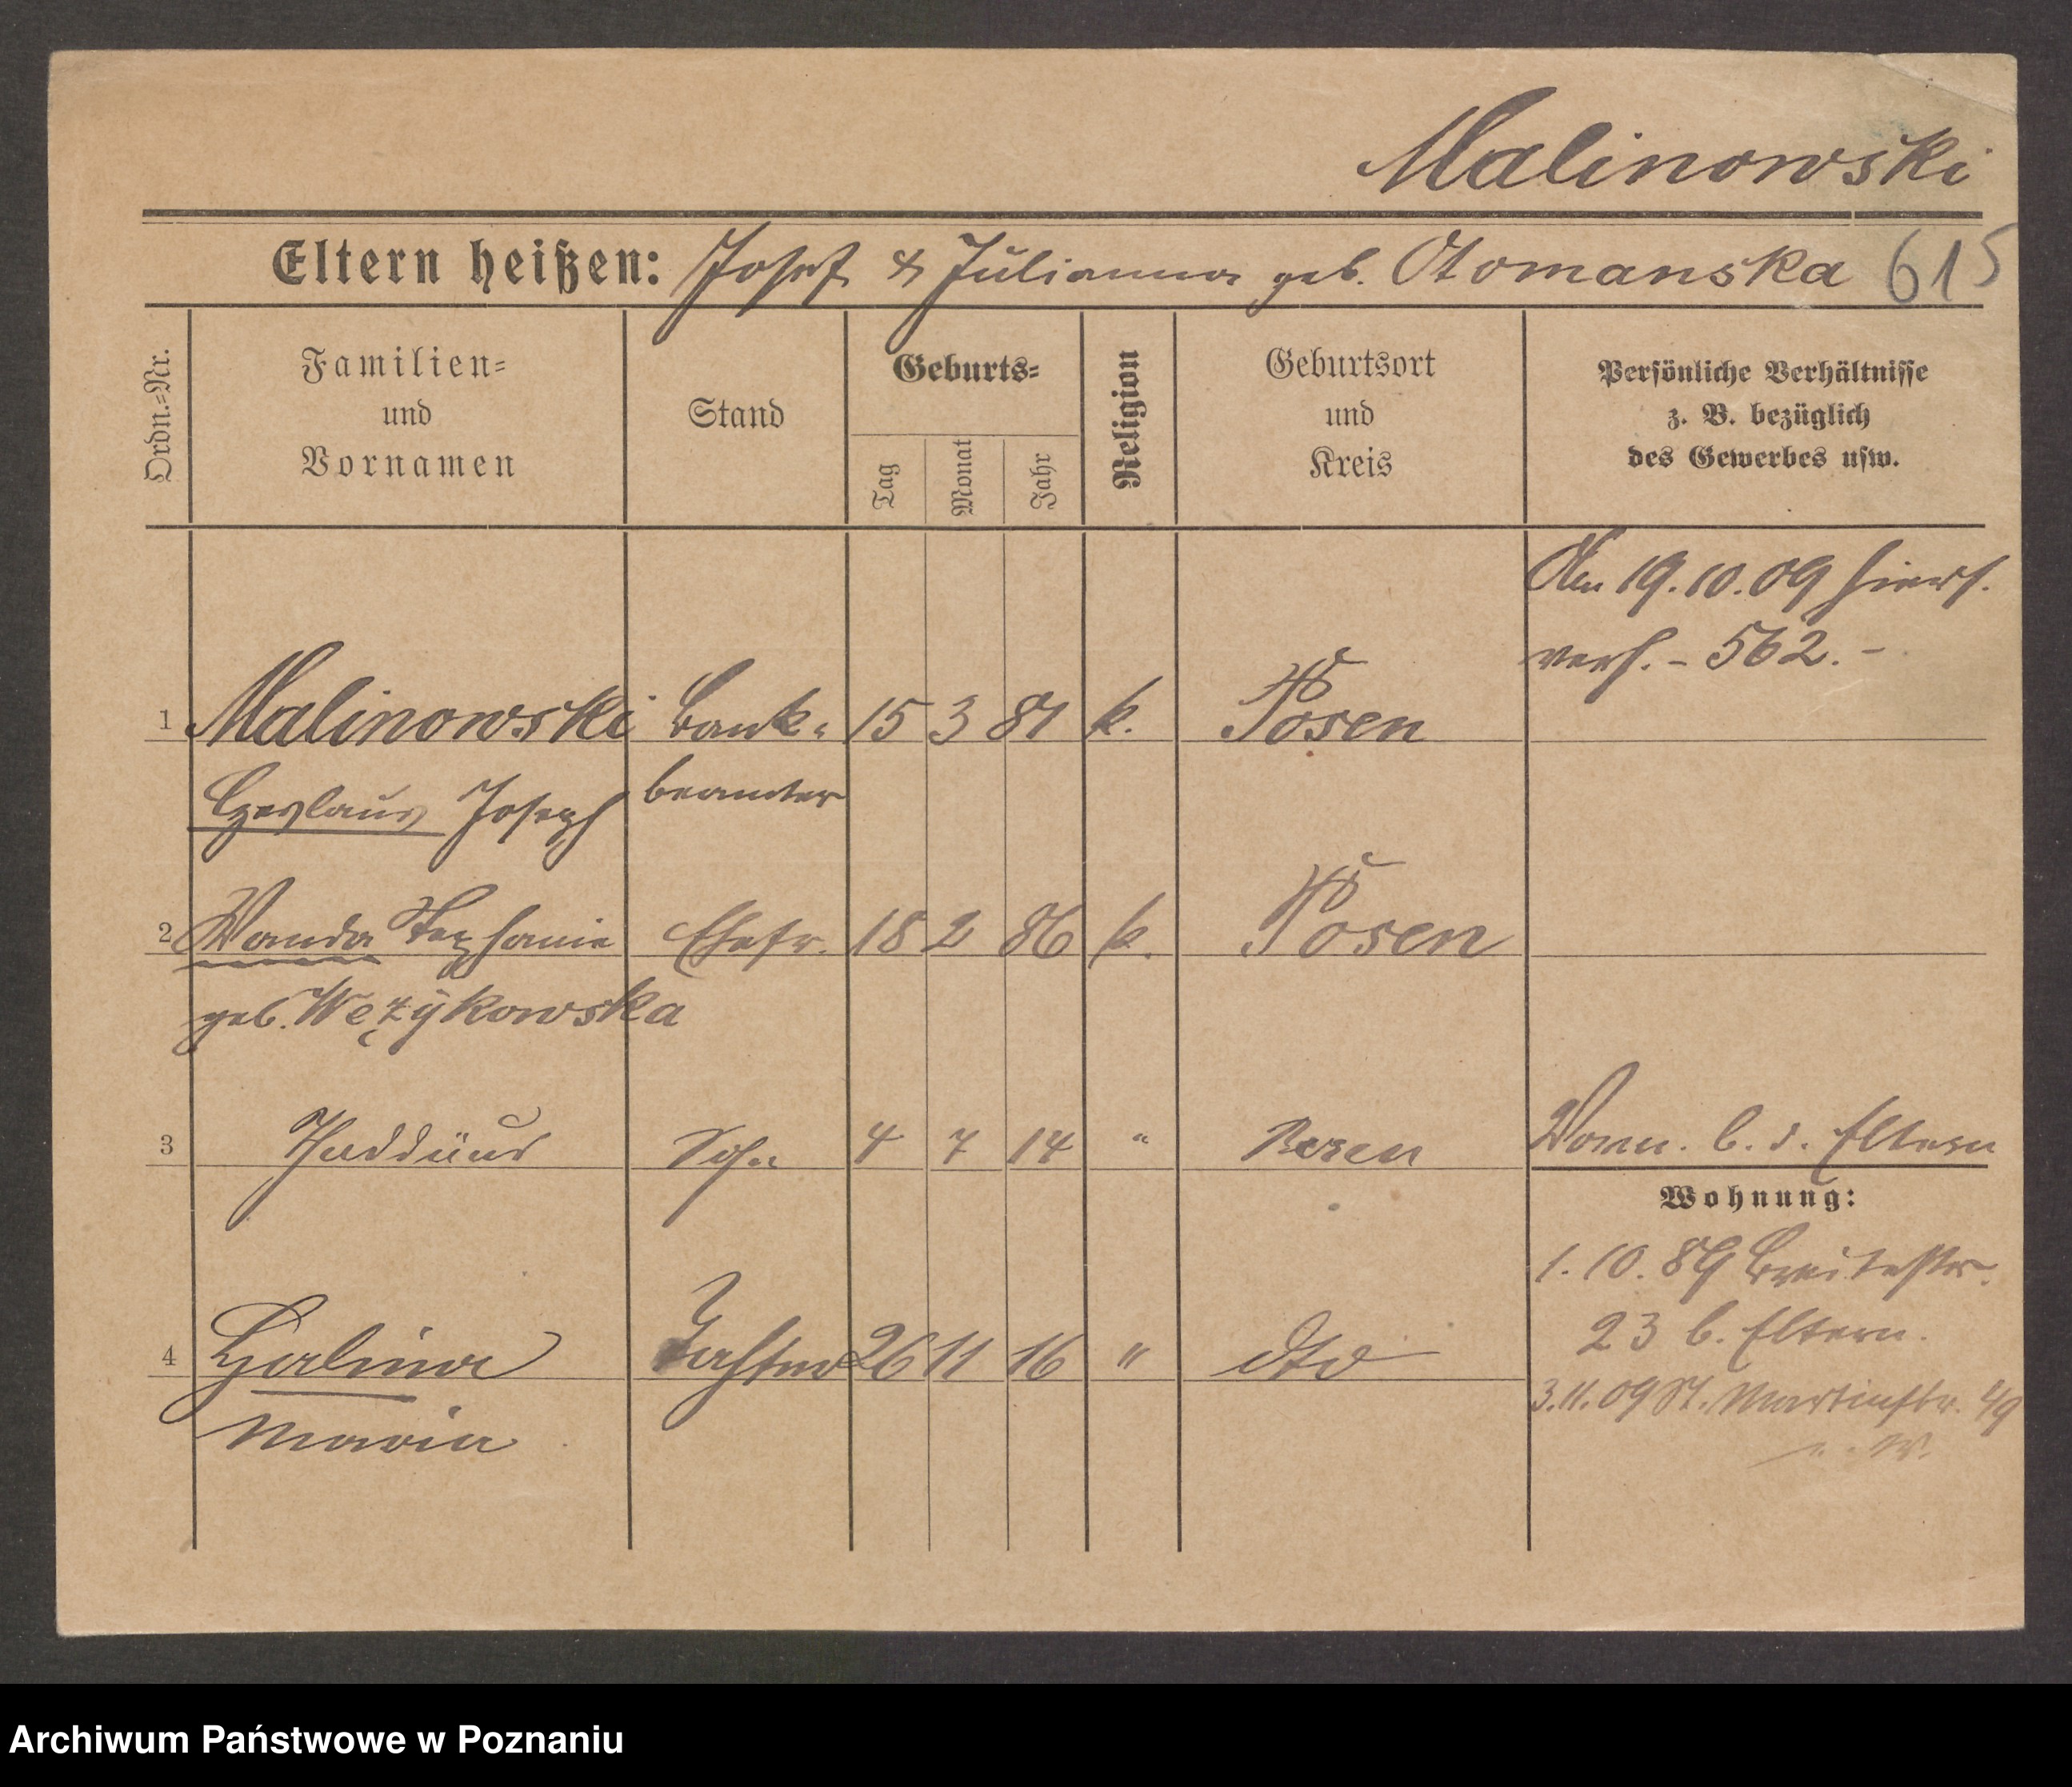 Malinowski
Eltern heißen: Josef & Julianna geb. Otomanska 615
Ordn.-Nr.
Familien-
und
Vornamen
Stand
Geburts-
Tag
Monat
Jahr
Religion
Geburtsort
und
Kreis
Persönliche Verhältnisse
z. B. bezüglich
des Gewerbes usw.
Am 19.10.09 hiers.
verh. - 562. -
1 Malinowski Bank- 15 3 81 k. Posen
Czeslaus Joseph beamter
2 Wanda Stephanie Ehefr. 18 2 86 k. Posen
geb. Wężykowska
3 Thaddäus Sohn 4 7 14 " Posen Vorn. b. d. Eltern
Wohnung:
1.10.89 Breitestr.
23 b. Eltern.
4 Halina Tochter 26 11 16 " dto
3.11.09 St. Martinstr. 49
Maria